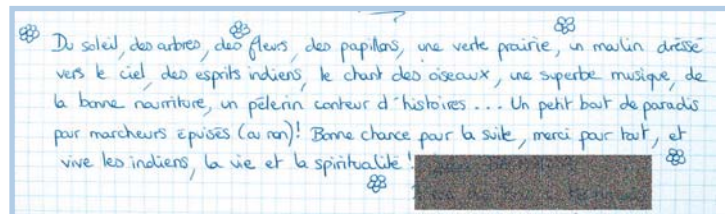 Du soleil, des arbres, des fleurs, des papillons, une verte prairie, un moulin dressé
vers le ciel, des esprits indiens, le chant des oiseaux, une superbe musique, de
la bonne nourriture, un pèlerin conteur d'histoires... Un petit bout de paradis
pour marcheurs épuisés (ou non)! Bonne chance pour la suite, merci pour tout, et
vive les indiens, la vie et la spiritualité!